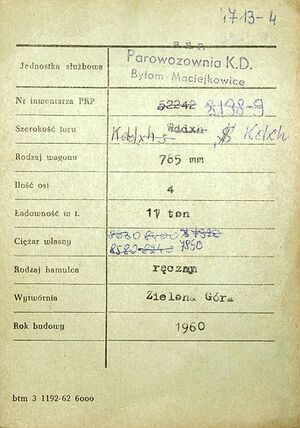 1713-4
P.K.P.
Jednostka służbowa Parowozownia K.D.
Bytom-Maciejkowice
Nr inwentarza PKP 52242 8198-9
Szerokość toru Kddxh Kddxh
Rodzaj wagonu 785 mm
Ilość osi 4
Ładowność w t. 17 ton
Ciężar własny 8530 8400
8580 8240 7850
Rodzaj hamulca ręczny
Wytwórnia Zielona Góra
Rok budowy 1960
btm 3 1192-62 6000